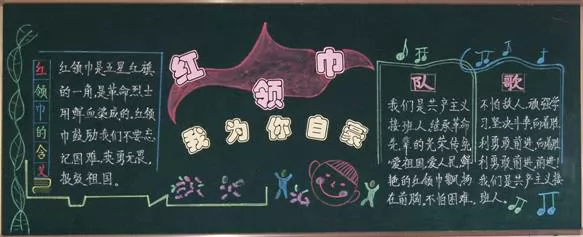 红领巾的含义
红领巾是五星红旗
的一角,是革命烈士
用鲜血染成的,红领
巾鼓励我们不要忘
记困难,英勇无畏,
报效祖国。
红领巾
我为你自豪
队歌
我们是共产主义
接班人,继承革命
先辈的光荣传统,
爱祖国,爱人民,鲜
艳的红领巾飘扬
在前胸。不怕困难,
不怕敌人,顽强学
习,坚决斗争,向着胜
利勇敢前进,向着胜
利勇敢前进,前进!
我们是共产主义接
班人。